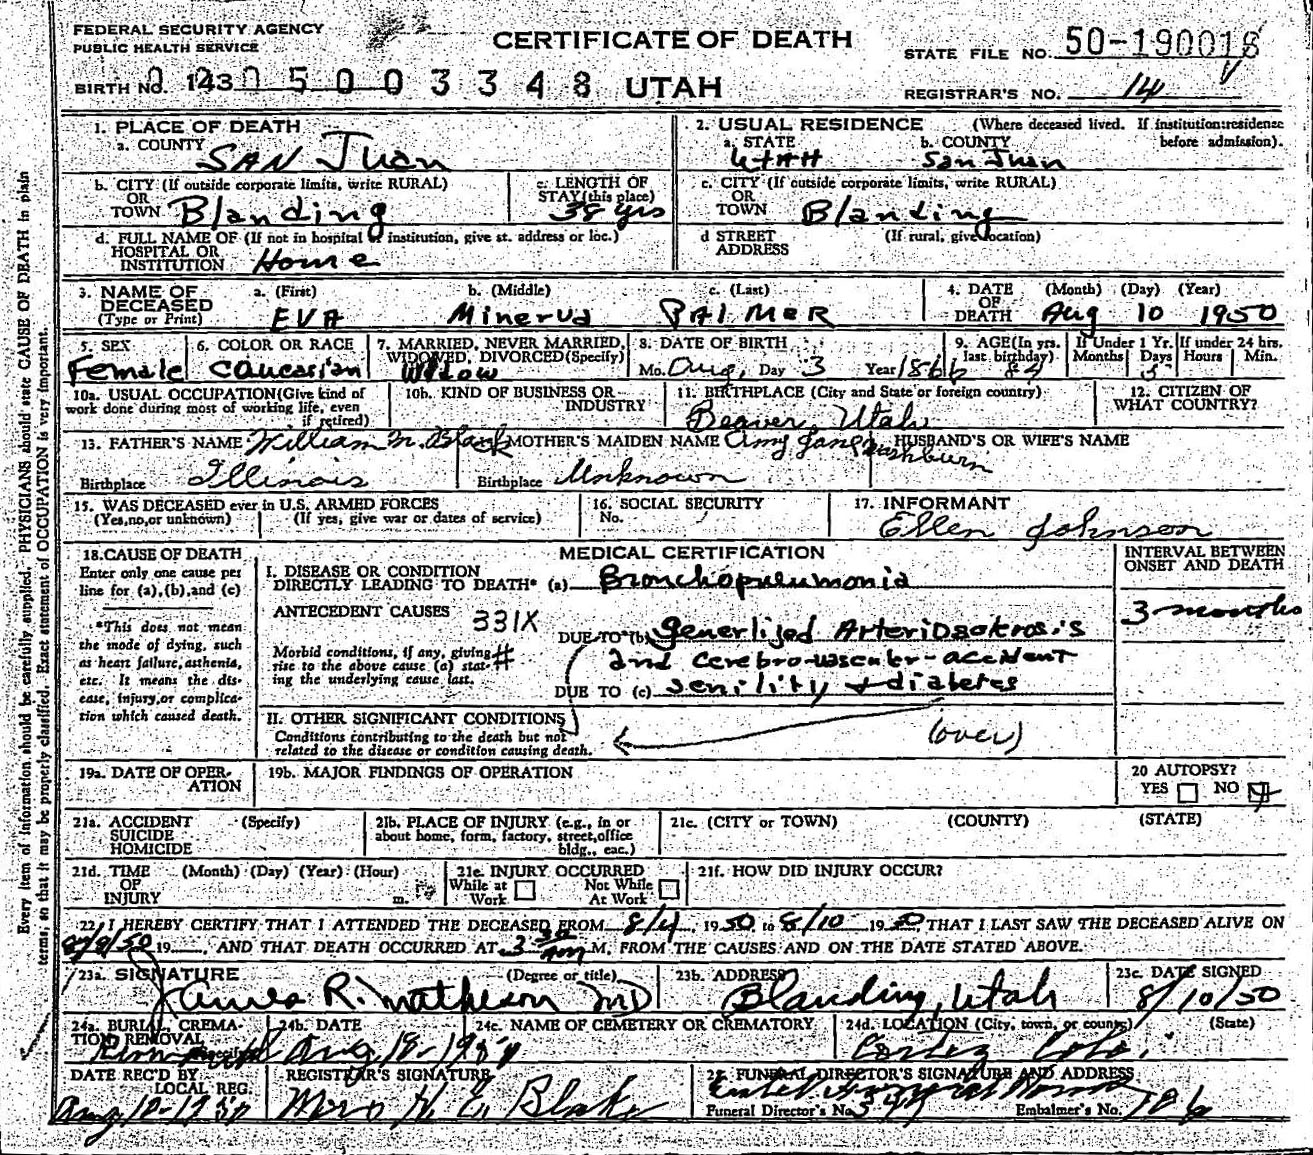 FEDERAL SECURITY AGENCY
PUBLIC HEALTH SERVICE
CERTIFICATE OF DEATH
STATE FILE NO. 50-190018
BIRTH NO. 143 0 5 0 0 3 3 4 8 UTAH
REGISTRAR'S NO. 14
1. PLACE OF DEATH
a. COUNTY SAN Juan
2. USUAL RESIDENCE (Where deceased lived. If institution: residence before admission).
a. STATE UTAH b. COUNTY San Juan
b. CITY (If outside corporate limits, write RURAL) OR TOWN Blanding
c. LENGTH OF STAY (this place) 38 yrs
c. CITY (If outside corporate limits, write RURAL) OR TOWN Blanding
d. FULL NAME OF (If not in hospital or institution, give st. address or loc.) HOSPITAL OR INSTITUTION Home
d STREET ADDRESS (If rural, give location)
3. NAME OF DECEASED (Type or Print) a. (First) EVA b. (Middle) Minerva c. (Last) PALMER
4. DATE OF DEATH (Month) (Day) (Year) Aug 10 1950
5. SEX Female
6. COLOR OR RACE Caucasian
7. MARRIED, NEVER MARRIED, WIDOWED, DIVORCED (Specify) Widow
8. DATE OF BIRTH Mo. Aug, Day 3 Year 1866
9. AGE (In yrs. last birthday) 84 If Under 1 Yr. Months Days If under 24 hrs. Hours Min.
10a. USUAL OCCUPATION (Give kind of work done during most of working life, even if retired)
10b. KIND OF BUSINESS OR INDUSTRY
11. BIRTHPLACE (City and State or foreign country) Beaver, Utah
12. CITIZEN OF WHAT COUNTRY?
13. FATHER'S NAME William M. Black
MOTHER'S MAIDEN NAME Amy Jane Washburn
HUSBAND'S OR WIFE'S NAME
Birthplace Illinois
Birthplace Unknown
15. WAS DECEASED ever in U.S. ARMED FORCES (Yes, no, or unknown) (If yes, give war or dates of service)
16. SOCIAL SECURITY No.
17. INFORMANT Ellen Johnson
18. CAUSE OF DEATH
Enter only one cause per line for (a), (b), and (c)
*This does not mean the mode of dying, such as heart failure, asthenia, etc. It means the disease, injury, or complication which caused death.
MEDICAL CERTIFICATION
INTERVAL BETWEEN ONSET AND DEATH
I. DISEASE OR CONDITION DIRECTLY LEADING TO DEATH* (a) Bronchopneumonia
3 months
ANTECEDENT CAUSES 331X
Morbid conditions, if any, giving rise to the above cause (a) stating the underlying cause last. #
DUE TO (b) generlized Arteriosclerosis
and cerebro-vascular-accident
DUE TO (c) senility + diabetes
II. OTHER SIGNIFICANT CONDITIONS
Conditions contributing to the death but not related to the disease or condition causing death.
(over)
19a. DATE OF OPERATION
19b. MAJOR FINDINGS OF OPERATION
20 AUTOPSY? YES NO
21a. ACCIDENT SUICIDE HOMICIDE (Specify)
21b. PLACE OF INJURY (e.g., in or about home, form, factory, street, office bldg., eac.)
21c. (CITY or TOWN) (COUNTY) (STATE)
21d. TIME OF INJURY (Month) (Day) (Year) (Hour) m.
21e. INJURY OCCURRED While at Work Not While At Work
21f. HOW DID INJURY OCCUR?
22. I HEREBY CERTIFY THAT I ATTENDED THE DECEASED FROM 8/4, 1950 to 8/10 1950, THAT I LAST SAW THE DECEASED ALIVE ON
8/9/50 19 , AND THAT DEATH OCCURRED AT 3 30 am M. FROM THE CAUSES AND ON THE DATE STATED ABOVE.
23a. SIGNATURE (Degree or title) James R. Matheson MD
23b. ADDRESS Blanding, Utah
23c. DATE SIGNED 8/10/50
24a. BURIAL, CREMATION, REMOVAL
24b. DATE
24c. NAME OF CEMETERY OR CREMATORY
24d. LOCATION (City, town, or county) (State) Cortez Colo.
DATE REC'D BY LOCAL REG.
REGISTRAR'S SIGNATURE Mrs H. E. Blake
25. FUNERAL DIRECTOR'S SIGNATURE AND ADDRESS
Funeral Director's No.
Embalmer's No. 786
Every item of information should be carefully supplied. PHYSICIANS should state CAUSE OF DEATH in plain
terms, so that it may be properly classified. Exact statement of OCCUPATION is very important.